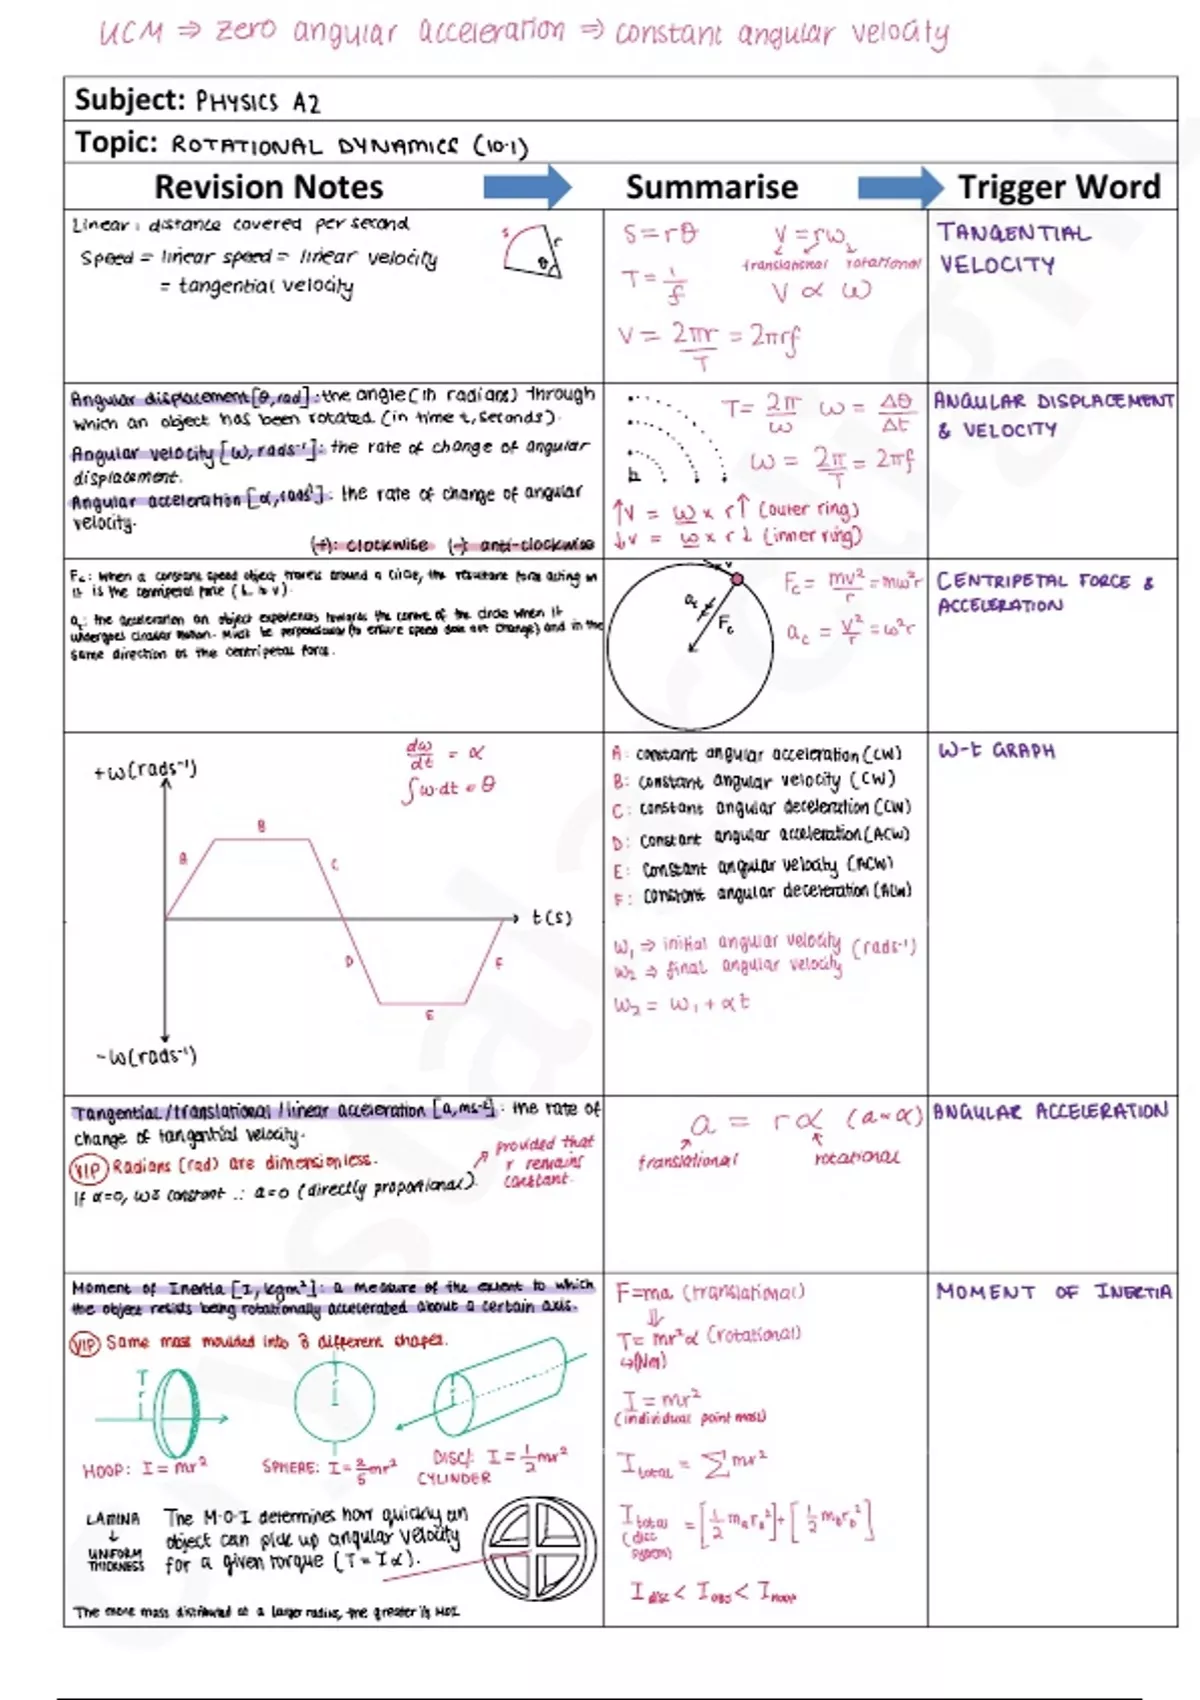 UCM ⇒ zero angular acceleration ⇒ constant angular velocity
Subject: PHYSICS A2
Topic: ROTATIONAL DYNAMICS (10.1)
Revision Notes
Summarise
Trigger Word
Linear: distance covered per second
Speed = linear speed = linear velocity
= tangential velocity
s
r
θ
S = rθ
V = rω
translational rotational
T = 1/f
V ∝ ω
V = 2πr/T = 2πrf
TANGENTIAL
VELOCITY
Angular displacement [θ, rad]: the angle (in radians) through
which an object has been rotated (in time t, seconds).
Angular velocity [ω, rads⁻¹]: the rate of change of angular
displacement.
Angular acceleration [α, rads⁻²]: the rate of change of angular
velocity.
(+): clockwise (-): anti-clockwise
T = 2π/ω ω = Δθ/Δt
ω = 2π/T = 2πf
↑V = ω x r↑ (outer ring)
↓V = ω x r↓ (inner ring)
ANGULAR DISPLACEMENT
& VELOCITY
Fc: when a constant speed object travels around a circle, the resultant force acting on
it is the centripetal force (⊥ to v).
ac: the acceleration an object experiences towards the centre of the circle when it
undergoes circular motion. Must be perpendicular (to ensure speed does not change) and in the
same direction as the centripetal force.
v
ac
Fc
Fc = mv²/r = mω²r
ac = v²/r = ω²r
CENTRIPETAL FORCE &
ACCELERATION
+ω(rads⁻¹)
dω/dt = α
∫ω·dt = θ
A
B
C
t(s)
D
E
F
-ω(rads⁻¹)
A: constant angular acceleration (CW)
B: constant angular velocity (CW)
C: constant angular deceleration (CW)
D: constant angular acceleration (ACW)
E: constant angular velocity (ACW)
F: constant angular deceleration (ACW)
ω₁ ⇒ initial angular velocity (rads⁻¹)
ω₂ ⇒ final angular velocity
ω₂ = ω₁ + αt
ω-t GRAPH
Tangential/translational/linear acceleration [a, ms⁻²]: the rate of
change of tangential velocity.
VIP Radians (rad) are dimensionless.
If α=0, ω is constant ∴ a=0 (directly proportional).
provided that
r remains
constant.
a = rα (a ∝ α)
translational
rotational
ANGULAR ACCELERATION
Moment of Inertia [I, kgm²]: a measure of the extent to which
the object resists being rotationally accelerated about a certain axis.
VIP Same mass moulded into 3 different shapes.
r
r
r
HOOP: I = mr²
SPHERE: I = 2/5 mr²
DISC/: I = 1/2 mr²
CYLINDER
LAMINA
↓
UNIFORM
THICKNESS
The M.O.I determines how quickly an
object can pick up angular velocity
for a given torque (T = Iα).
The more mass distributed at a larger radius, the greater its MOI
F=ma (translational)
⇓
T= mr²α (rotational)
↪(Nm)
I = mr²
(individual point mass)
I total = Σmr²
I total = [1/2 mₐrₐ²] + [1/2 m_b r_b²]
(disc
system)
I disc < I obj < I hoop
MOMENT OF INERTIA